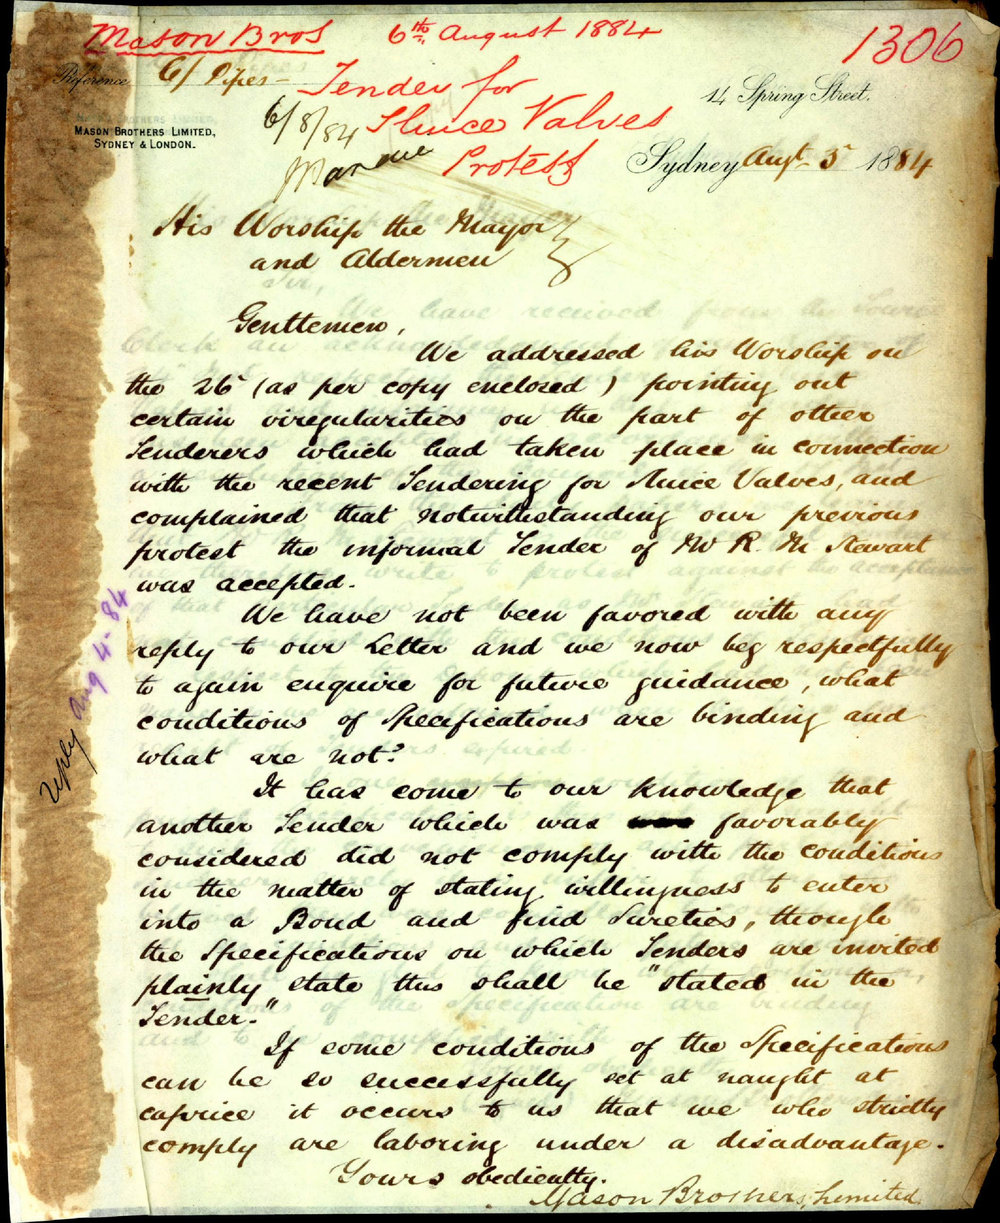 Mason Bros 6th August 1884 1306
Reference 6/ Pipes
Tender for
Sluice Valves
Protest
6/8/84
14 Spring Street.
MASON BROTHERS LIMITED,
SYDNEY & LONDON.
Sydney Augt 5 1884
His Worship the Mayor
and Aldermen
Gentlemen,
We addressed his Worship on
the 26 (as per copy enclosed) pointing out
certain irregularities on the part of other
Tenderers which had taken place in connection
with the recent Tendering for Sluice Valves, and
complained that notwithstanding our previous
protest the informal Tender of Mr R. M. Stewart
was accepted.
We have not been favored with any
reply to our Letter and we now beg respectfully
to again enquire for future guidance, what
conditions of Specifications are binding and
what are not?
reply Aug 4-84
It has come to our knowledge that
another Tender which was favorably
considered did not comply with the conditions
in the matter of stating willingness to enter
into a Bond and find Sureties, though
the Specifications on which Tenders are invited
plainly state this shall be "stated in the
Tender."
If some conditions of the Specifications
can be so successfully set at naught at
caprice it occurs to us that we who strictly
comply are laboring under a disadvantage.
Yours obediently.
Mason Brothers, Limited